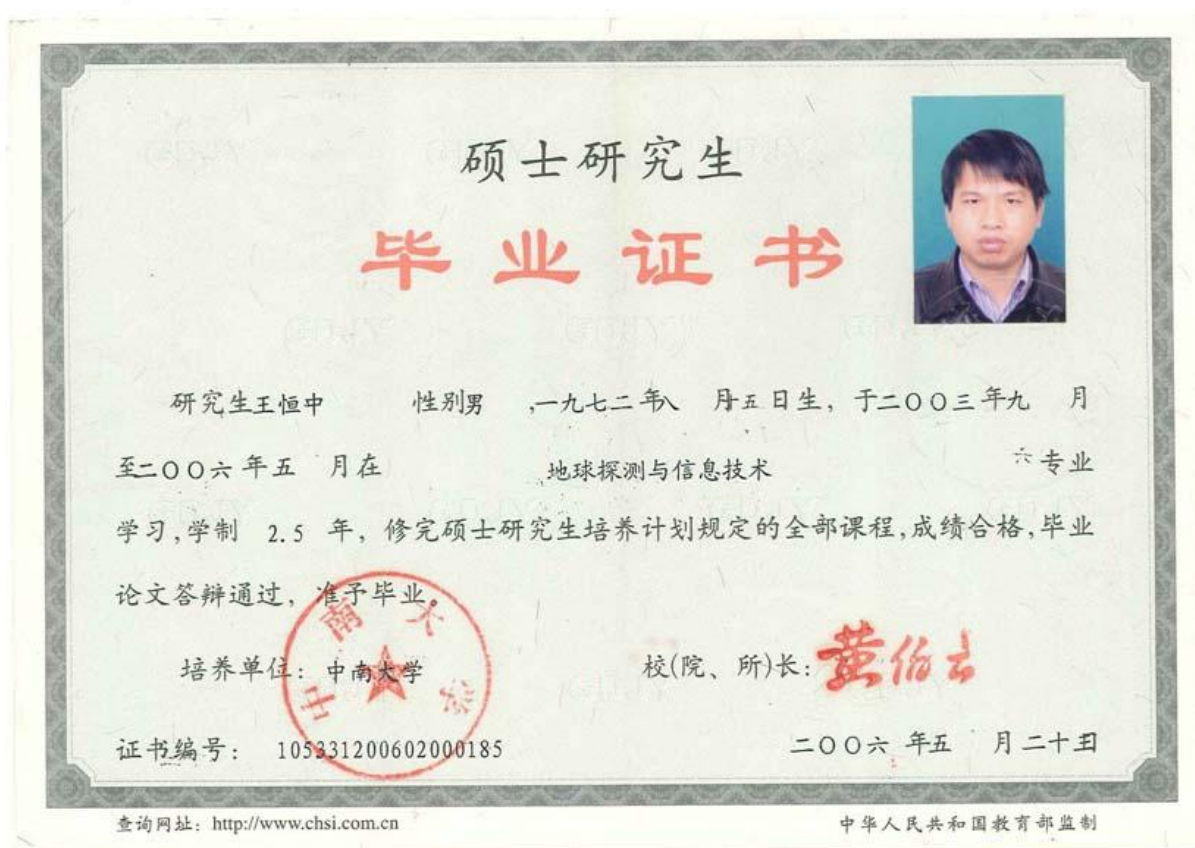 硕士研究生
毕业证书
研究生王恒中 性别男 ,一九七二年八 月五日生, 于二〇〇三年九 月
至二〇〇六年五 月在 地球探测与信息技术 专业
学习,学制 2.5 年, 修完硕士研究生培养计划规定的全部课程,成绩合格,毕业
论文答辩通过, 准予毕业。
中南大学
培养单位: 中南大学 校(院、所)长: 黄伯云
证书编号: 105331200602000185 二〇〇六 年五 月二十日
查询网址: http://www.chsi.com.cn 中华人民共和国教育部监制